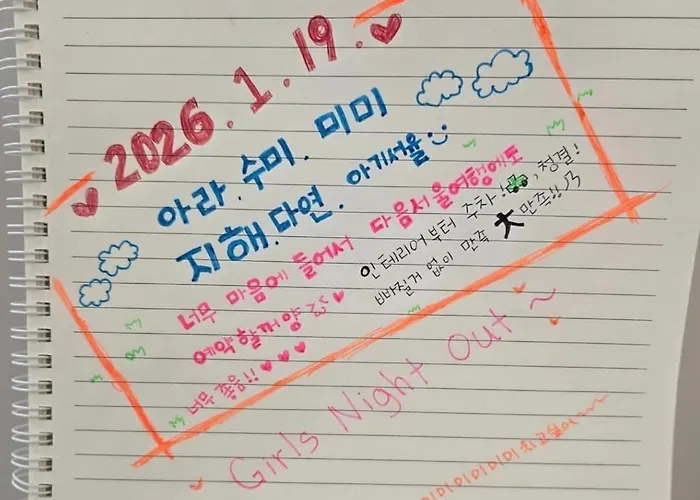 2026. 1. 19. ♥
아라. 수미. 미미
지해. 다연. 아기서율
너무 마음에 들어서 다음서울여행에도
예약할꺼양 ♥
너무 좋음!! ♥♥♥
인테리어부터 주차!, 청결!
빠질거 없이 만족 大만족!!
Girls Night Out ~
미미미미미미치고싶어~~